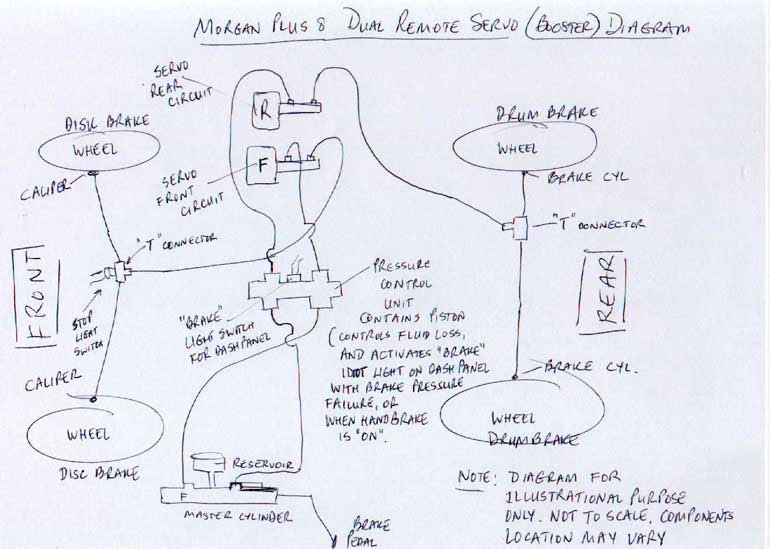 MORGAN PLUS 8 DUAL REMOTE SERVO (BOOSTER) DIAGRAM
SERVO
REAR
CIRCUIT
R
DISK BRAKE
WHEEL
CALIPER
SERVO
FRONT
CIRCUIT
F
DRUM BRAKE
WHEEL
BRAKE CYL
"T" CONNECTOR
"T" CONNECTOR
FRONT
STOP
LIGHT
SWITCH
REAR
"BRAKE"
LIGHT SWITCH
FOR DASH PANEL
PRESSURE
CONTROL
UNIT
CONTAINS PISTON
(CONTROLS FLUID LOSS,
AND ACTIVATES "BRAKE"
IDIOT LIGHT ON DASH PANEL
WITH BRAKE PRESSURE
FAILURE, OR
WHEN HANDBRAKE
IS "ON".
BRAKE CYL.
CALIPER
WHEEL
DISC BRAKE
WHEEL
DRUM BRAKE
RESERVOIR
F
MASTER CYLINDER
BRAKE
PEDAL
NOTE: DIAGRAM FOR
ILLUSTRATIONAL PURPOSE
ONLY. NOT TO SCALE, COMPONENTS
LOCATION MAY VARY